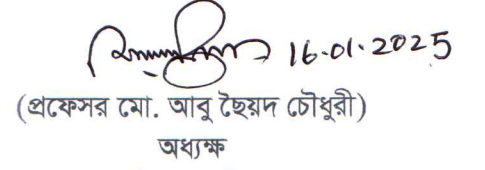 16-01-2025
(প্রফেসর মো. আবু ছৈয়দ চৌধুরী)
অধ্যক্ষ